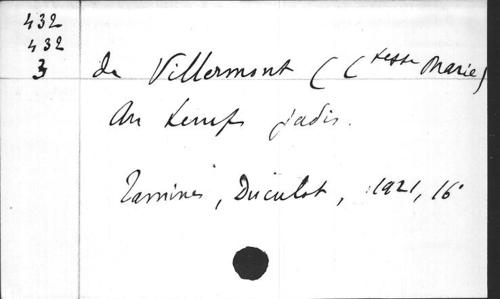 432
432
3
de Villermont (Ctesse Marie)
Au temps jadis.
Tamines, Duculot, 1921, 16°